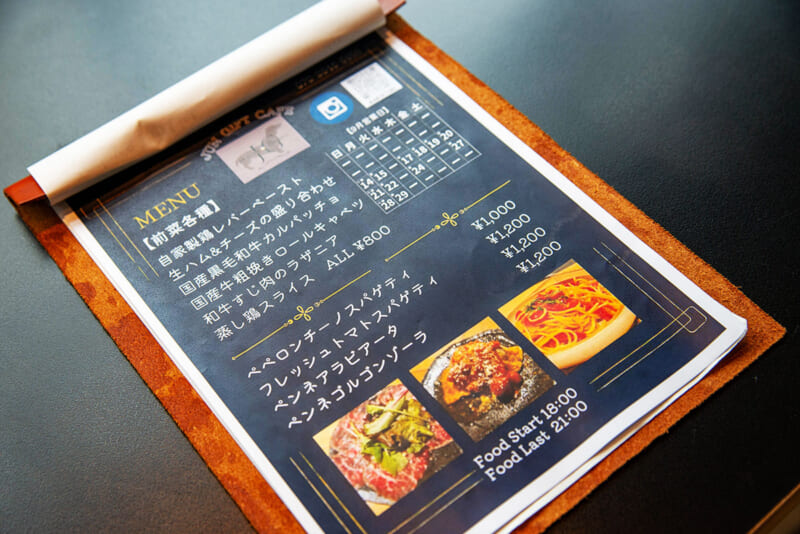 JUN GIFT CAFE
【9月営業日】
日 月 火 水 木 金 土
17 18 19 20
14 15 - - 24 - - 27
21 22
28 29
MENU
【前菜各種】
自家製鶏レバーペースト
生ハム&チーズの盛り合わせ
国産黒毛和牛カルパッチョ
国産牛粗挽きロールキャベツ
和牛すじ肉のラザニア
蒸し鶏スライス ALL ¥800
ペペロンチーノスパゲティ ¥1,000
フレッシュトマトスパゲティ ¥1,200
ペンネアラビアータ ¥1,200
ペンネゴルゴンゾーラ ¥1,200
Food Start 18:00
Food Last 21:00